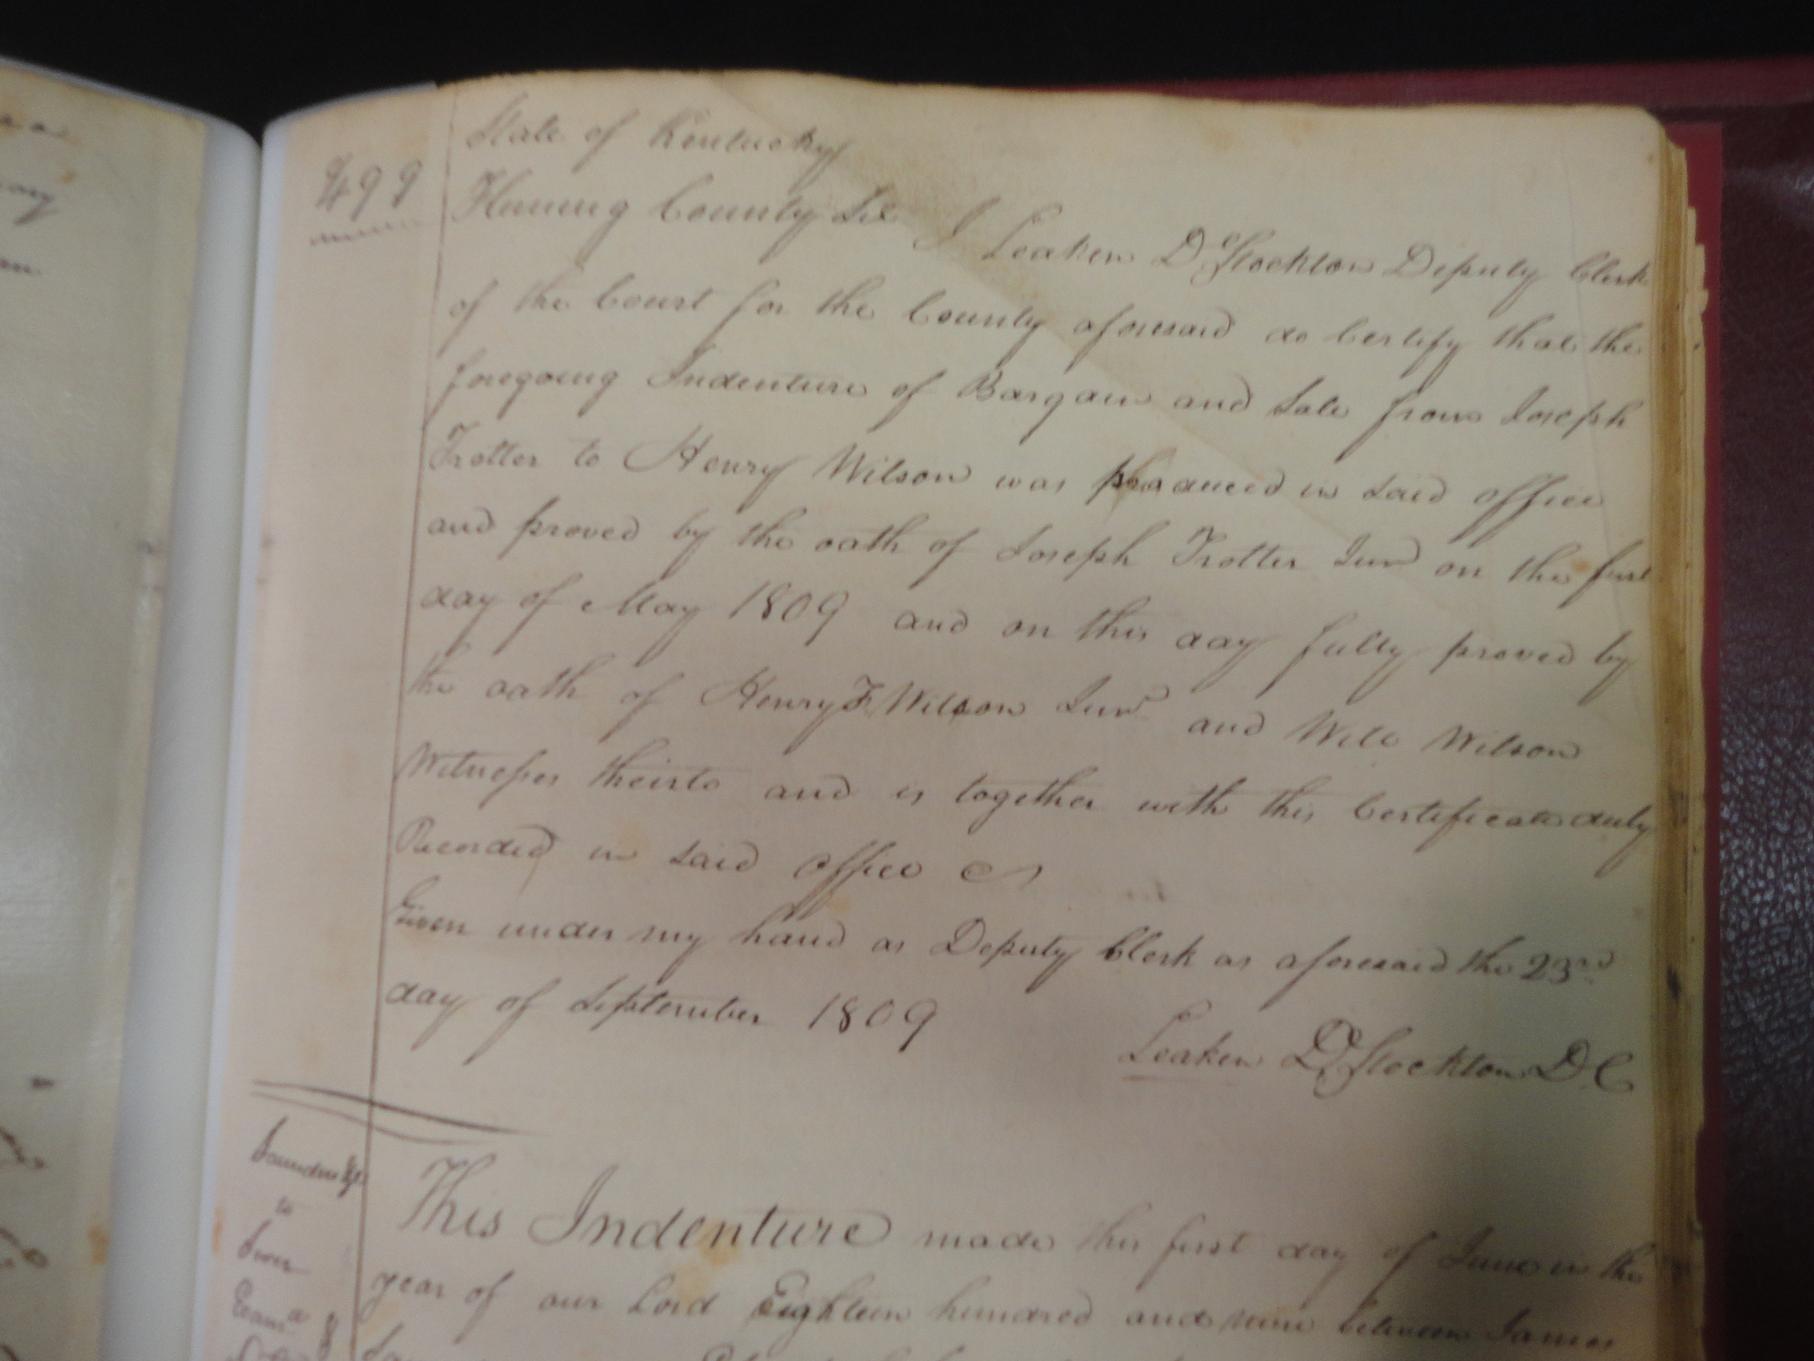 State of Kentucky
499
Fleming County Sct I Leaken D Stockton Deputy Clerk
of the Court for the County aforesaid do Certify that the
foregoing Indenture of Bargain and Sale from Joseph
Trotter to Henry Wilson was produced in said office
and proved by the oath of Joseph Trotter Junr on the first
day of May 1809 and on this day fully proved by
the oath of Henry F Wilson Junr and Will Wilson
Witnesses theirto and is together with this Certificate duly
Recorded in said office
Given under my hand as Deputy Clerk as aforesaid the 23rd
day of September 1809
Leaken D Stockton D C
Saunders &c
to
This Indenture made this first day of June in the
year of our Lord Eighteen hundred and nine between James